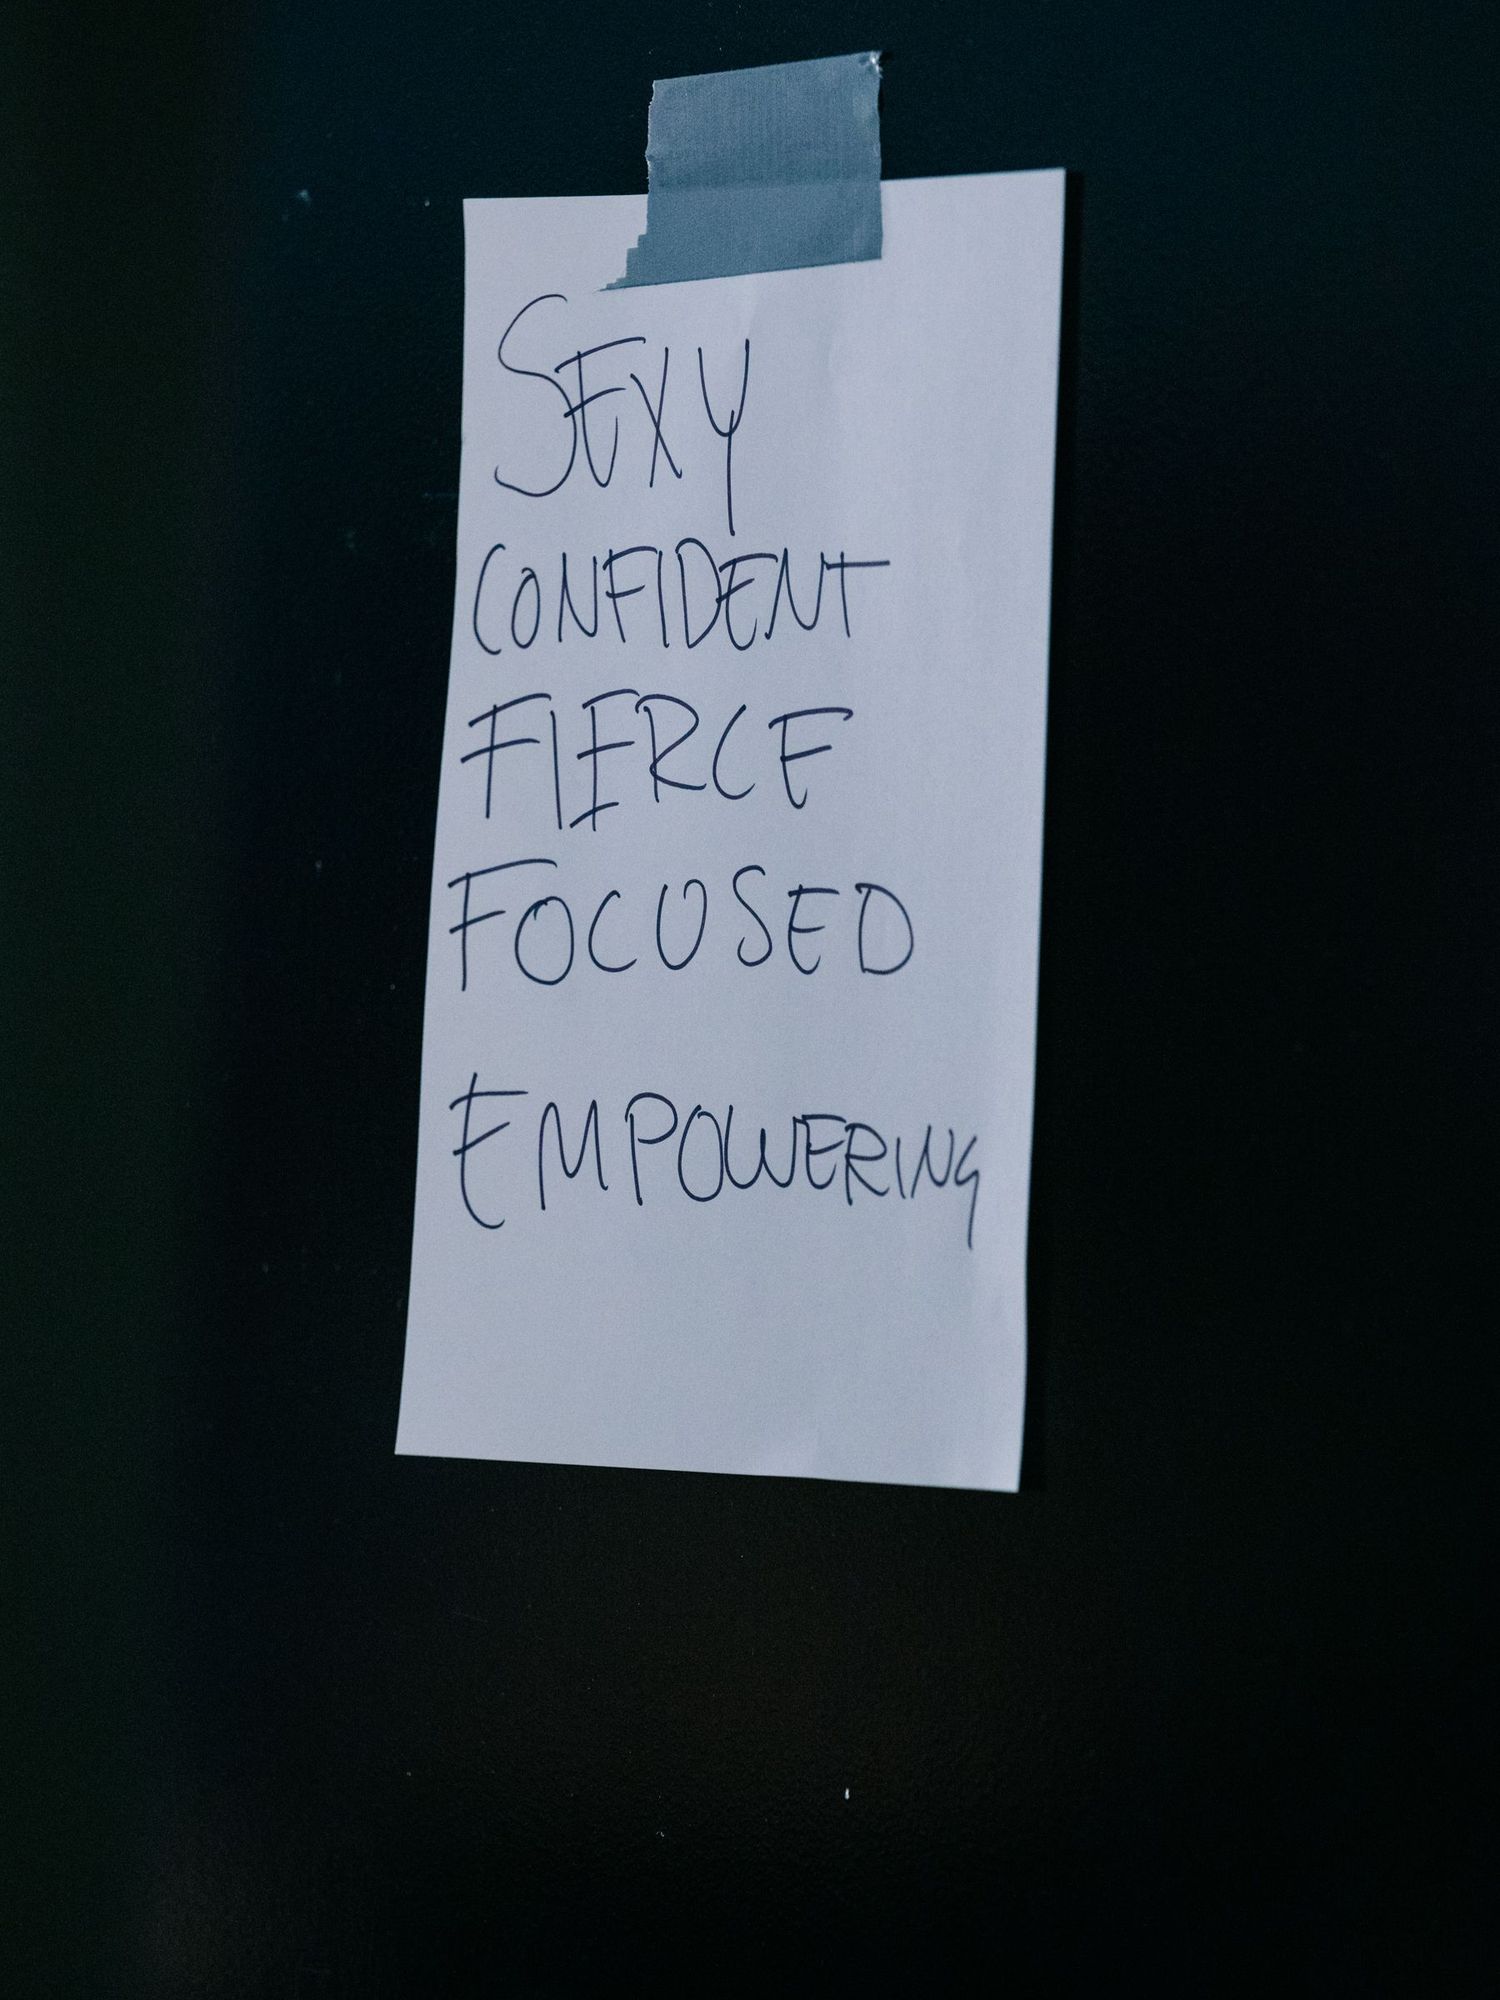 SEXY
CONFIDENT
FIERCE
FOCUSED
EMPOWERING